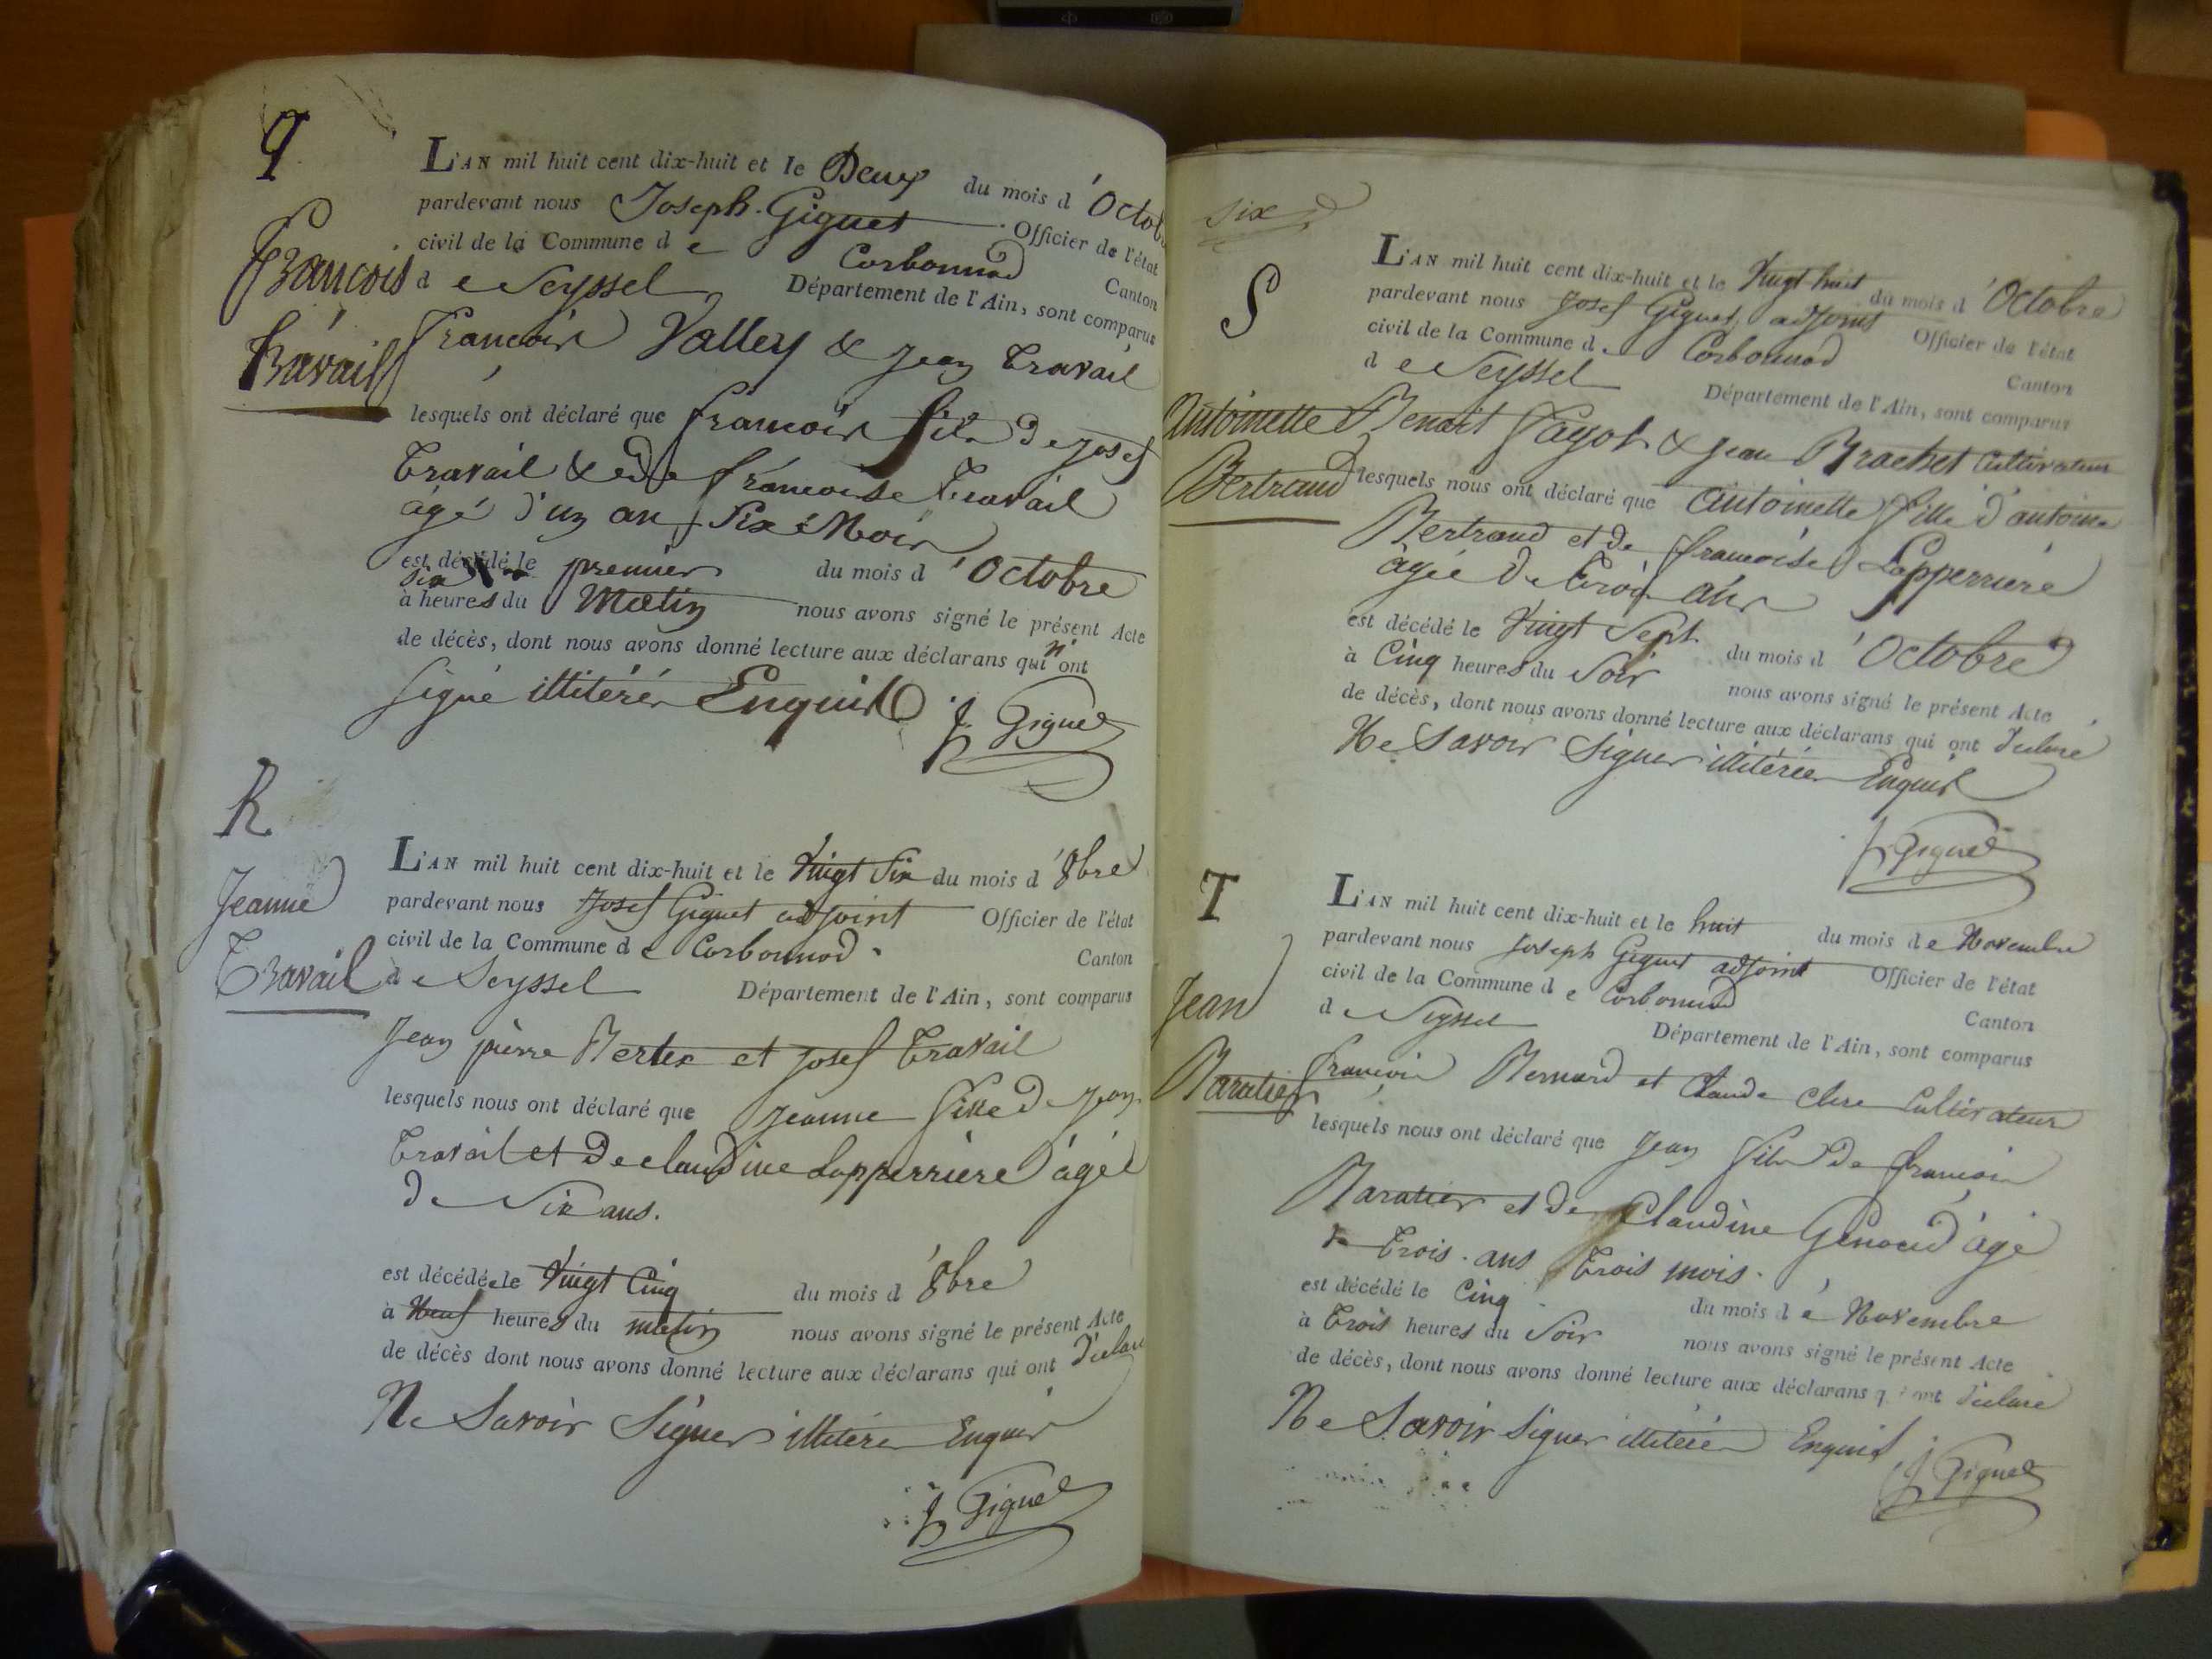 Q
L'AN mil huit cent dix-huit et le Deux du mois d'Octob
pardevant nous Joseph Giguet Officier de l'état
civil de la Commune de Corbonnod Canton
de Seyssel Département de l'Ain, sont comparus
François Travail
François Valley & Jean Travail
lesquels ont déclaré que françois fils de josef
Travail & de françoise Travail
âgé d'un an Six Mois
est décédé le premier du mois d'Octobre
à six heures du Matin nous avons signé le présent Acte
de décès, dont nous avons donné lecture aux déclarans qui n'ont
signé illitérés Enquis
J Giguet
R
Jeanne
Travail
L'AN mil huit cent dix-huit et le Vingt Six du mois d'8bre
pardevant nous Josef Giguet adjoint Officier de l'état
civil de la Commune de Corbonnod Canton
de Seyssel Département de l'Ain, sont comparus
Jean pierre Bertex et josef Travail
lesquels nous ont déclaré que jeanne fille de jean
Travail et de claudine Lapperriere âgée
de Six ans.
est décédée le Vingt Cinq du mois d'8bre
à Neuf heures du matin nous avons signé le présent Acte
de décès dont nous avons donné lecture aux déclarans qui ont déclaré
Ne Savoir Signer illitérés Enquis
J Giguet
six
S
L'AN mil huit cent dix-huit et le Vingt huit du mois d'Octobre
pardevant nous Josef Giguet adjoint Officier de l'état
civil de la Commune d. Corbonnod Canton
de Seyssel Département de l'Ain, sont comparus
Antoinette Bertrand
Benoit Fayot & jean Brachet Cultivateurs
lesquels nous ont déclaré que antoinette fille d'antoine
Bertrand et de françoise Lapperriere
âgée de trois ans
est décédé le Vingt Sept du mois d'Octobre
à Cinq heures du Soir nous avons signé le présent Acte
de décès, dont nous avons donné lecture aux déclarans qui ont déclaré
Ne Savoir Signer illitérés Enquis
J Giguet
T
Jean
Baratier
L'AN mil huit cent dix-huit et le huit du mois de Novembre
pardevant nous Joseph Giguet adjoint Officier de l'état
civil de la Commune de Corbonnod Canton
de Seyssel Département de l'Ain, sont comparus
françois Bernard et Claude Clerc Cultivateur
lesquels nous ont déclaré que jean fils de françois
Baratier et de Claudine Genoud âgé
de Trois ans Trois mois.
est décédé le Cinq du mois de Novembre
à Trois heures du Soir nous avons signé le présent Acte
de décès, dont nous avons donné lecture aux déclarans qui ont déclaré
Ne Savoir signer illitérés Enquis
J Giguet